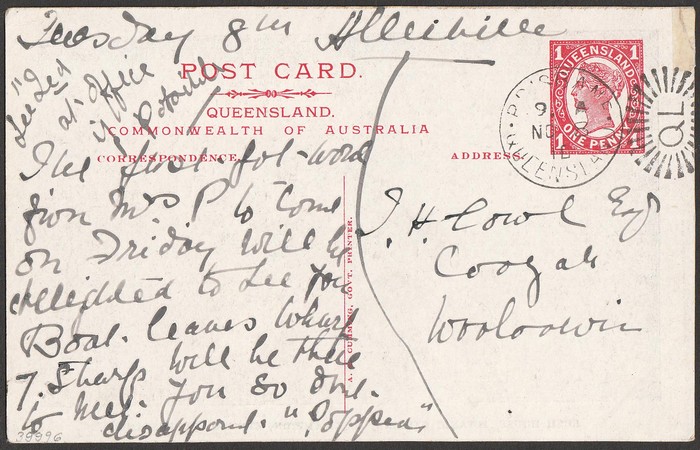 Tuesday 8th
POST CARD.
QUEENSLAND.
COMMONWEALTH OF AUSTRALIA
CORRESPONDENCE
ADDRESS
at office
if
QUEENSLAND
ONE PENNY
1 1
BRISBANE
QUEENSLAND
QL
I have just got word
from Mrs P to come
on Friday will be
delighted to see you
Boat leaves Wharf
7. Sharp will be there
to meet you so dont
disappoint. "Poppea"
A. CUMMING, GOVT. PRINTER.
J. H. Cowl Esq
Coogah
Wooloowin
39996